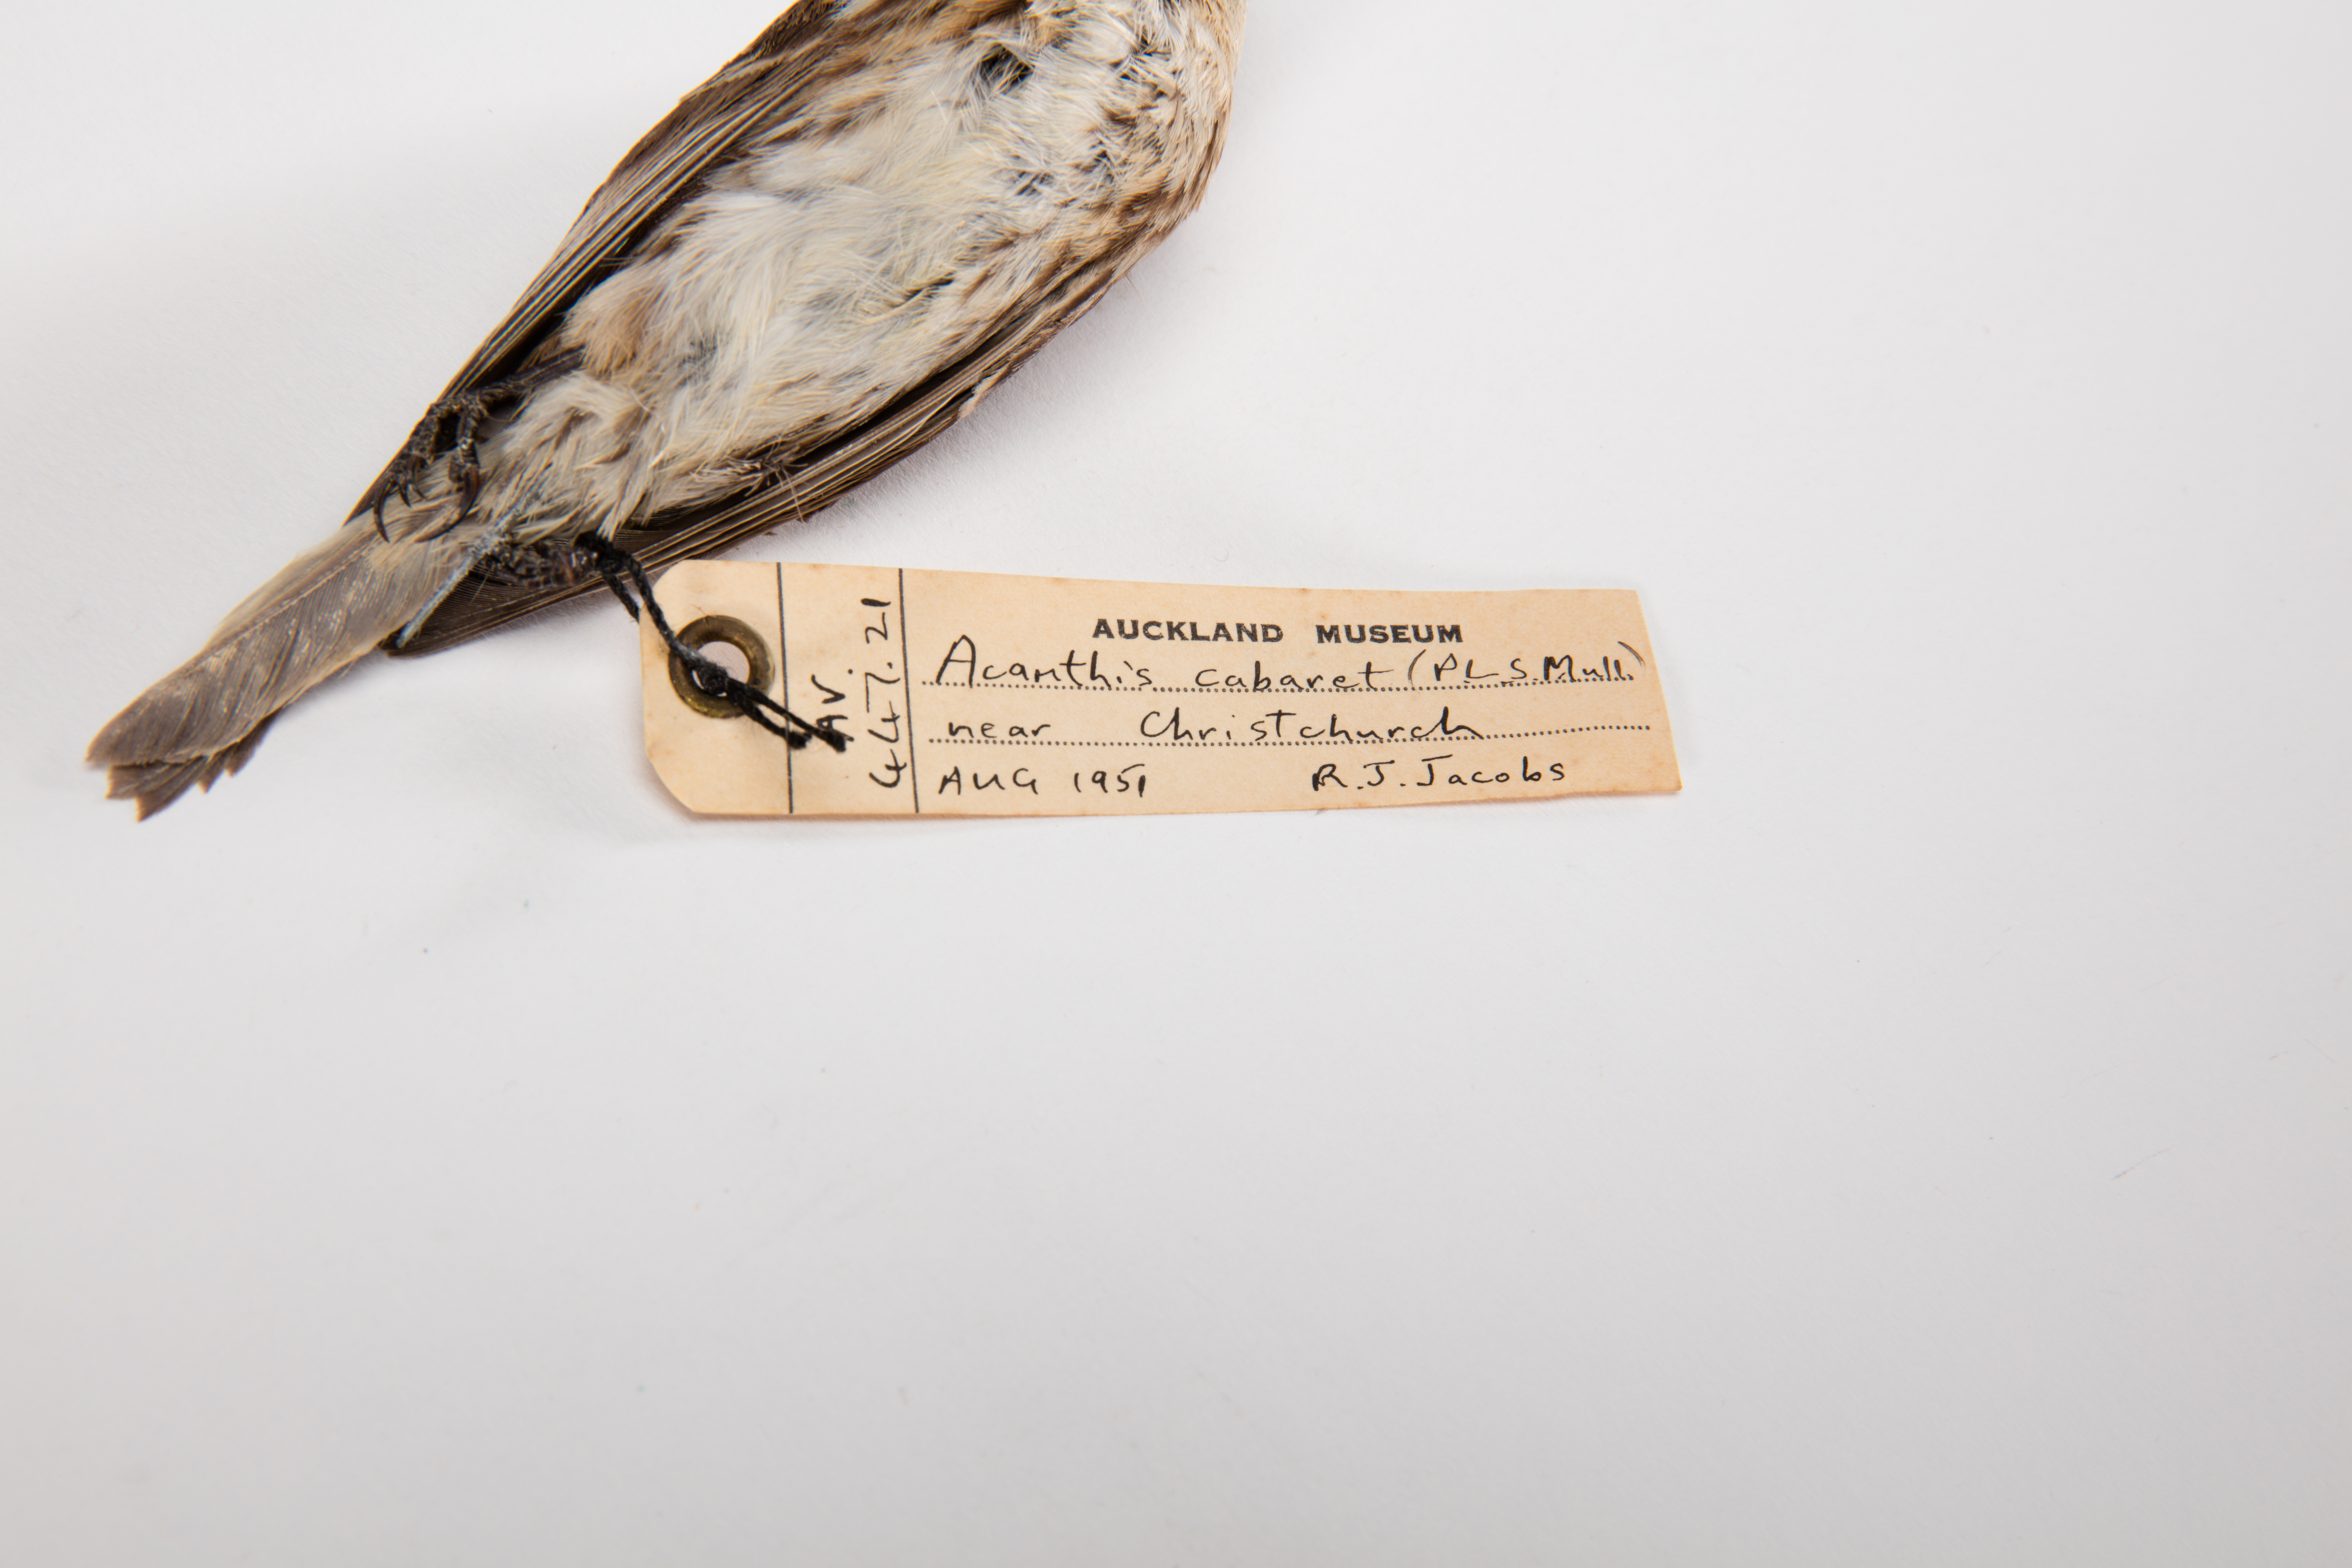 AV.
447.21
AUCKLAND MUSEUM
Acanthis cabaret (P.L.S. Mull.)
near Christchurch
AUG 1951 R.J. Jacobs